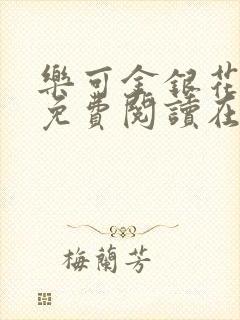 樂可金銀花
免費閱讀在
梅蘭芳